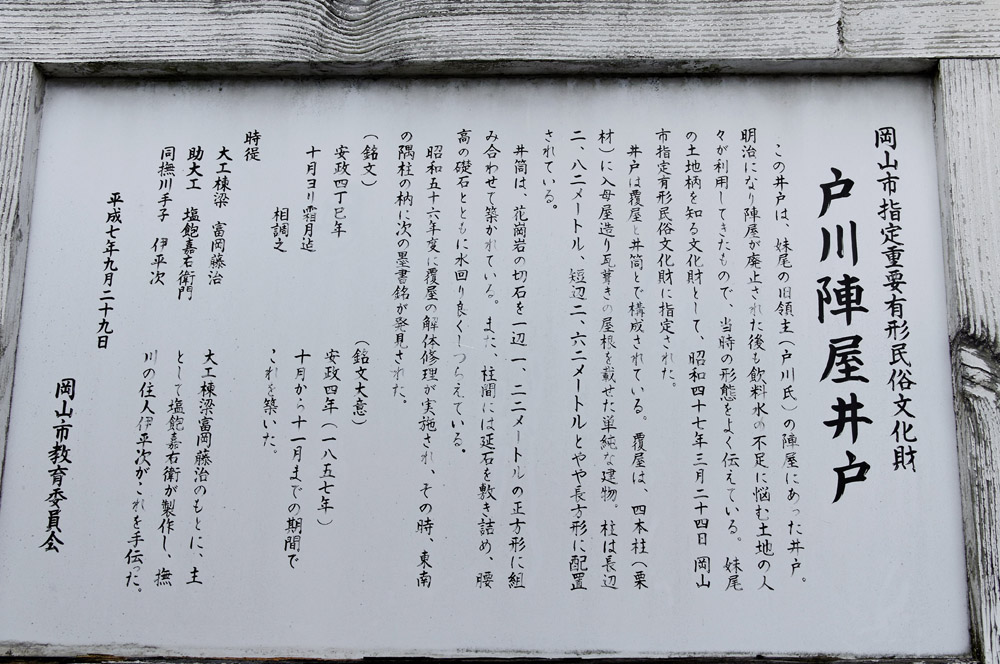 岡山市指定重要有形民俗文化財
戸川陣屋井戸
この井戸は、妹尾の旧領主（戸川氏）の陣屋にあった井戸。
明治になり陣屋が廃止された後も飲料水の不足に悩む土地の人
々が利用してきたもので、当時の形態をよく伝えている。妹尾
の土地柄を知る文化財として、昭和四十七年三月二十四日 岡山
市指定有形民俗文化財に指定された。
井戸は覆屋と井筒とで構成されている。覆屋は、四本柱（栗
材）に入母屋造り瓦葺きの屋根を載せた単純な建物。柱は長辺
二、八二メートル、短辺二、六二メートルとやや長方形に配置
されている。
井筒は、花崗岩の切石を一辺一、二二メートルの正方形に組
み合わせて築かれている。また、柱間には延石を敷き詰め、腰
高の礎石とともに水回り良くしつらえている。
昭和五十六年度に覆屋の解体修理が実施され、その時、東南
の隅柱の枘に次の墨書銘が発見された。
（銘文）
安政四丁巳年
十月ヨリ霜月迠
相調之
時従
大工棟梁 富岡藤治
助大工 塩飽嘉右衛門
同撫川手子 伊平次
（銘文大意）
安政四年（一八五七年）
十月から十一月までの期間で
これを築いた。
大工棟梁富岡藤治のもとに、主
として塩飽嘉右衛が製作し、撫
川の住人伊平次がこれを手伝った。
平成七年九月二十九日
岡山市教育委員会